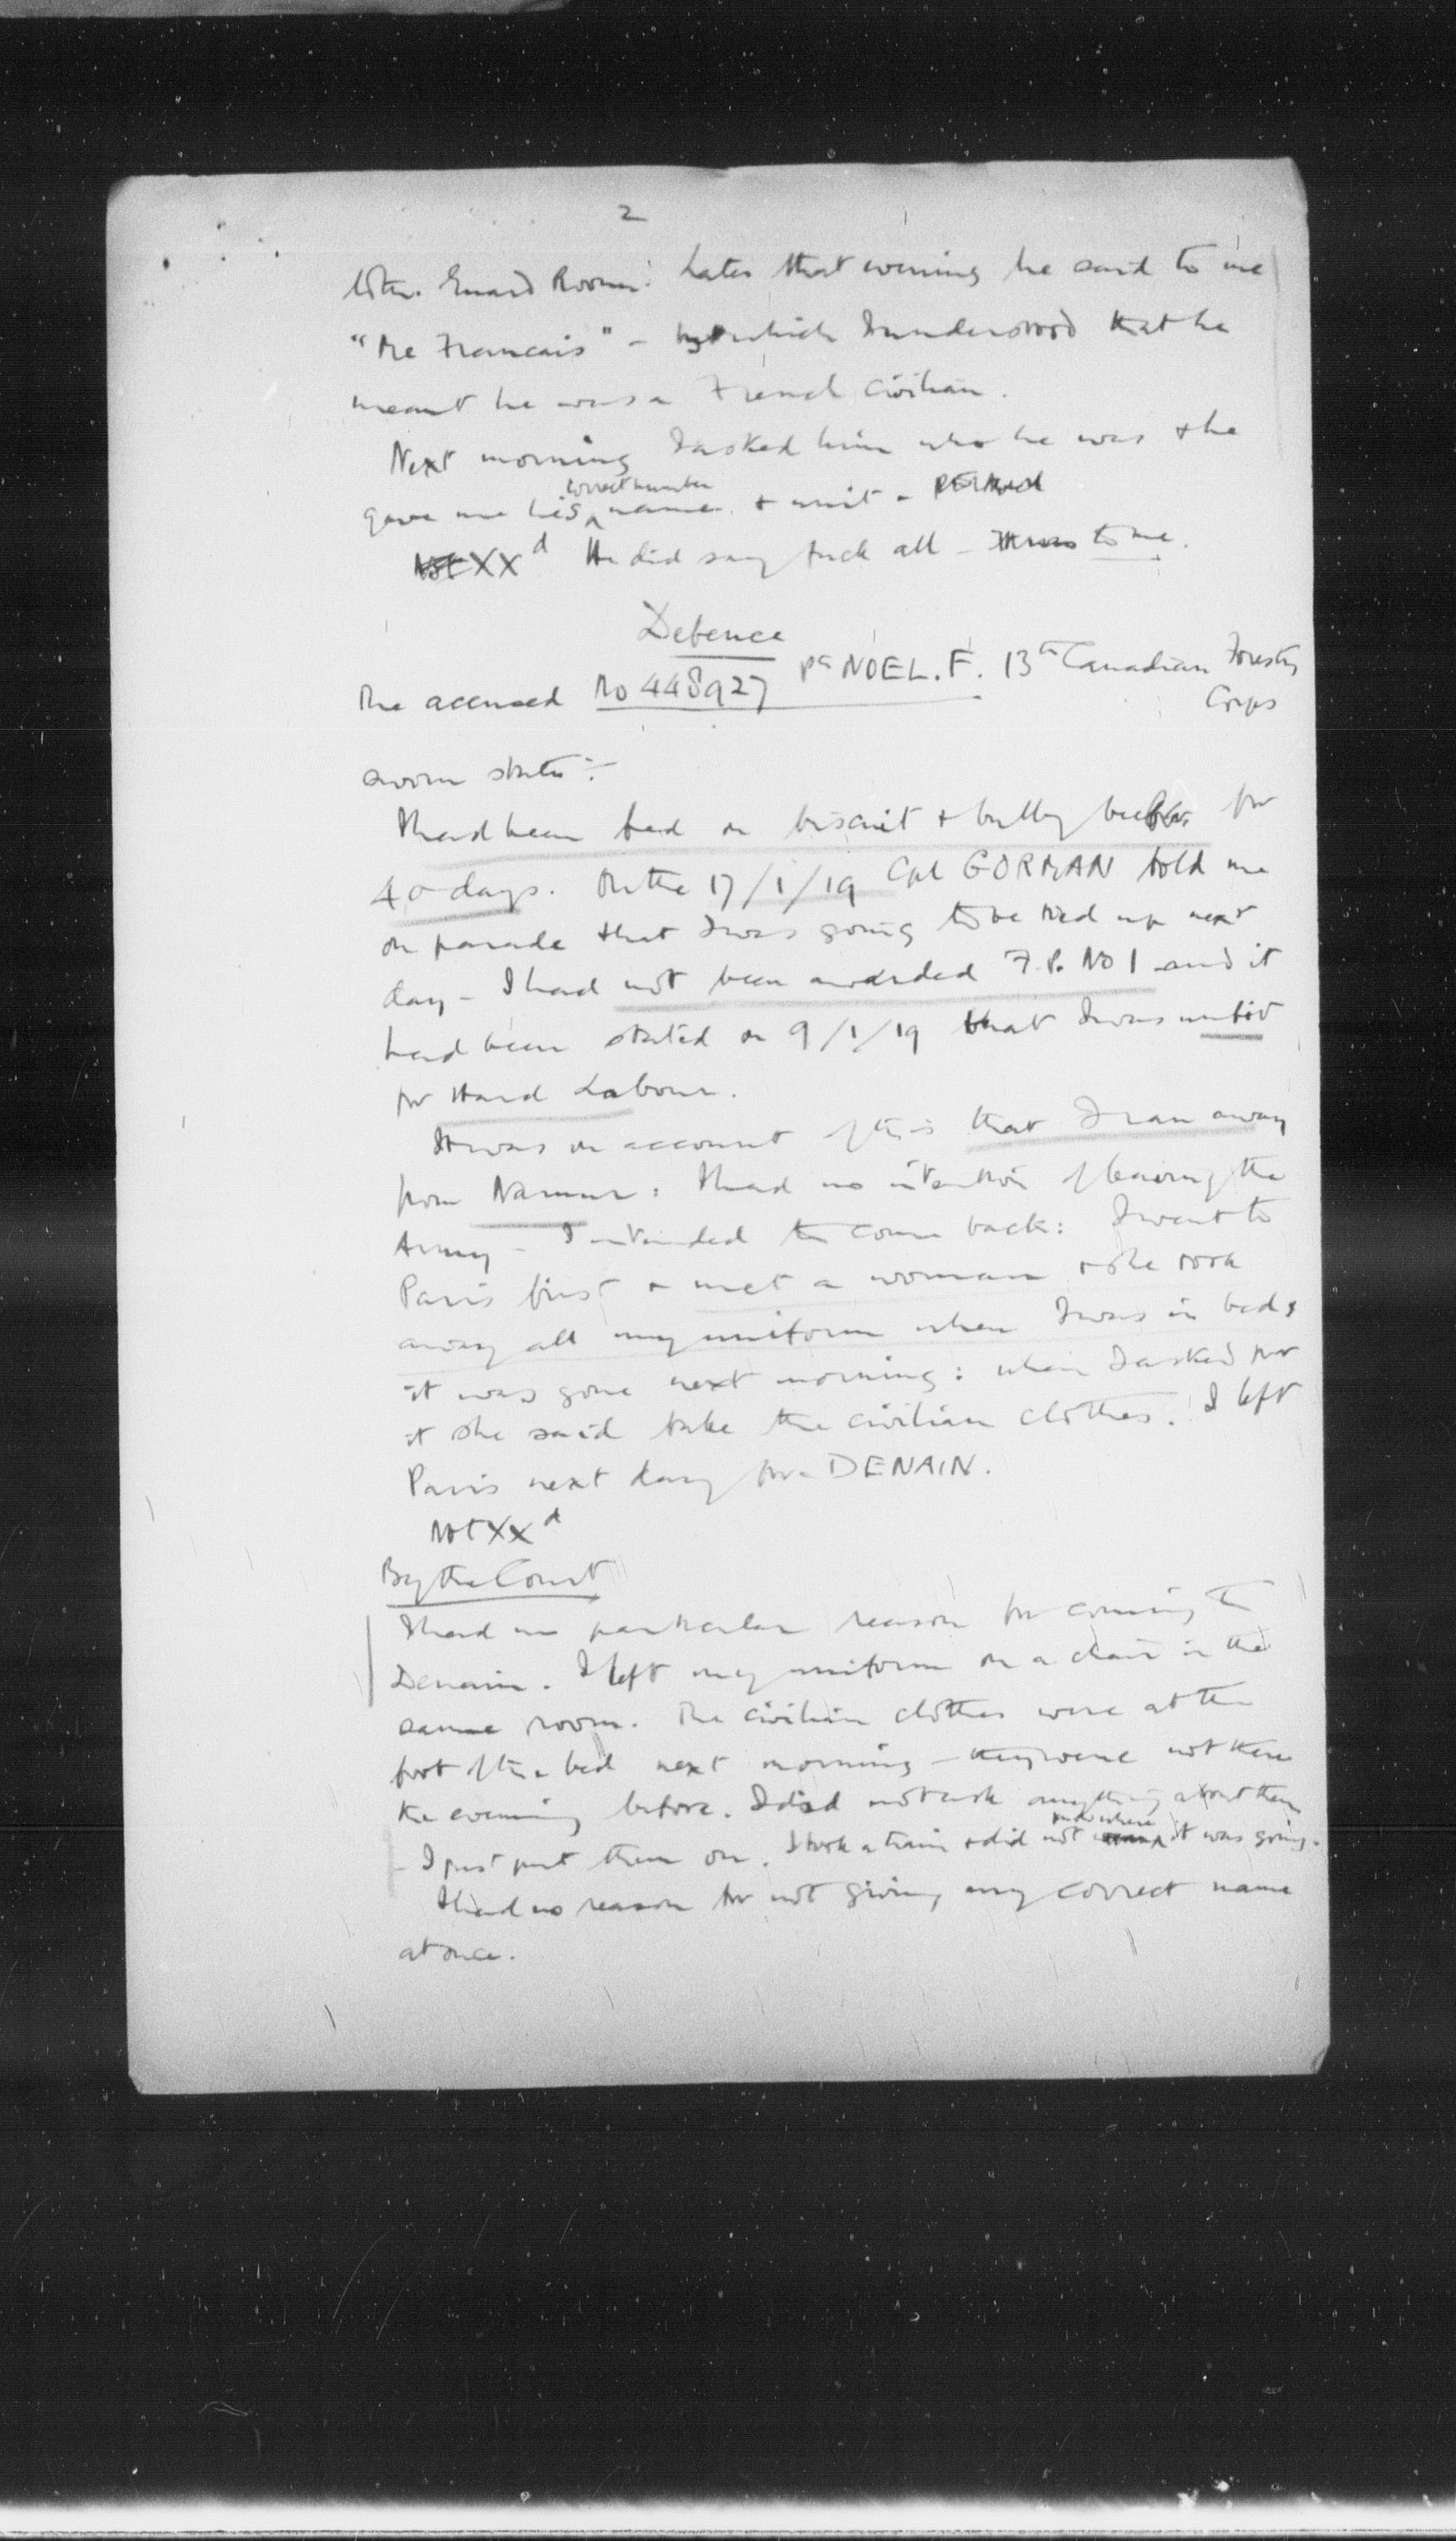 2
to the Guard Room. Later that evening he said to me
"Me Francais" - by which I understood that he
meant he was a French civilian.
Next morning I asked him who he was & he
correct number
gave me his name & unit -
XXd He did say fuck all - to me.
Defence
The accused No 448927 Pte NOEL. F. 13th Canadian Forestry
Corps
sworn states :-
I had been fed on biscuit & bully beef for
40 days. On the 17/1/19 Cpl GORMAN told me
on parade that I was going to be tied up next
day - I had not been awarded F.P. No 1 and it
had been stated on 9/1/19 that I was unfit
for Hard Labour.
It was on account of this that I ran away
from Namur: I had no intention of leaving the
Army - I intended to come back: I went to
Paris first & met a woman & she took
away all my uniform when I was in bed &
it was gone next morning: when I asked for
it she said take the civilian clothes. I left
Paris next day for DENAIN.
Not XXd
By the Court
I had no particular reason for coming to
Denain. I left my uniform on a chair in the
same room. The civilian clothes were at the
foot of the bed next morning - they were not there
the evening before. I did not ask anything about them
- I just put them on. I took a train & did not know where it was going.
I had no reason for not giving my correct name
at once.